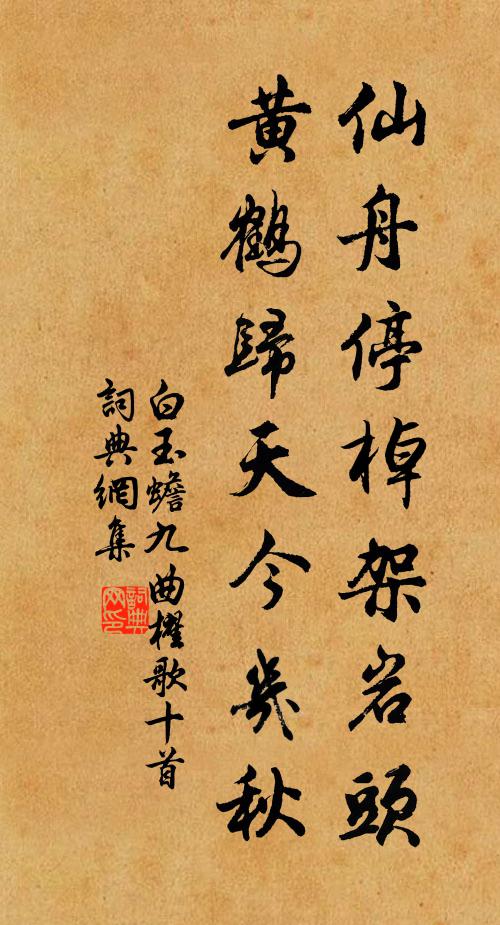 仙舟停棹架岩頭
黃鶴歸天今幾秋
白玉蟾九曲櫂歌十首
詞典網集
詞典网印